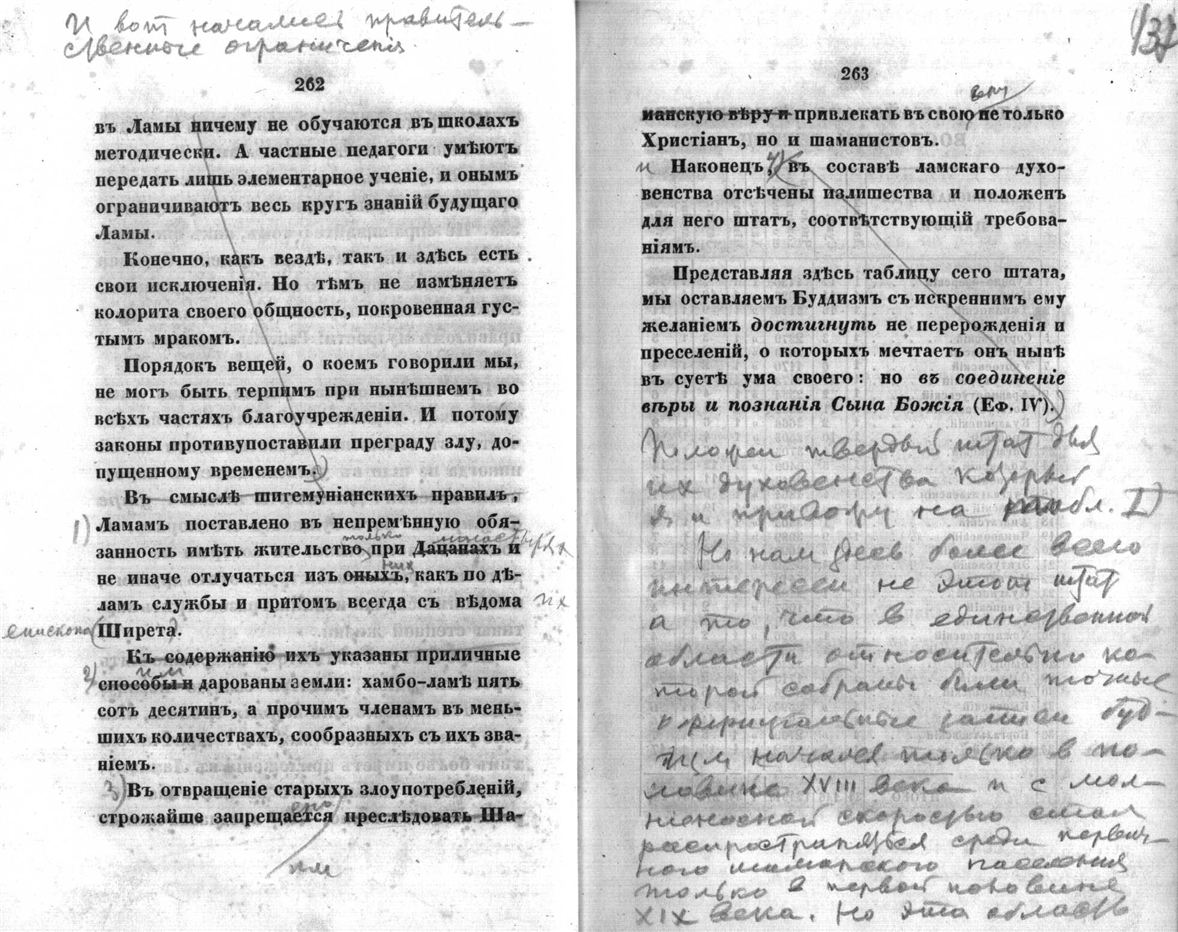 И вот начались правитель-
ственные ограничения
262
въ Ламы ничему не обучаются въ школахъ
методически. А частные педагоги умѣютъ
передать лишь элементарное ученіе, и онымъ
ограничиваютъ весь кругъ знаній будущаго
Ламы.
Конечно, какъ вездѣ, такъ и здѣсь есть
свои исключенія. Но тѣмъ не измѣняетъ
колорита своего общность, покровенная гус-
тымъ мракомъ.
Порядокъ вещей, о коемъ говорили мы,
не могъ быть терпимъ при нынѣшнемъ во
всѣхъ частяхъ благоучрежденіи. И потому
законы противупоставили преграду злу, до-
пущенному временемъ.)
Въ смыслѣ шигемуніанскихъ правилъ,
1) Ламамъ поставлено въ непремѣнную обя-
только монастырях
занность имѣть жительство при Дацанахъ и
них
не иначе отлучаться изъ оныхъ, какъ по дѣ-
ламъ службы и притомъ всегда съ вѣдома их
епископа (Ширета.
Къ содержанію ихъ указаны приличные
им
2) способы и дарованы земли: хамбо-ламѣ пять
сотъ десятинъ, а прочимъ членамъ въ мень-
шихъ количествахъ, сообразныхъ съ ихъ зва-
ніемъ.
3) Въ отвращеніе старыхъ злоупотребленій,
строжайше запрещается преслѣдовать Ша-
им
137
263
веру
манскую вѣру и привлекать въ свою не только
Христіанъ, но и шаманистовъ.
и Наконецъ, 4) въ составѣ ламскаго духо-
венства отсѣчены излишества и положенъ
для него штатъ, соотвѣтствующій требова-
ніямъ.
Представляя здѣсь таблицу сего штата,
мы оставляемъ Буддизмъ съ искреннимъ ему
желаніемъ достигнуть не перерожденія и
преселеній, о которыхъ мечтаетъ онъ нынѣ
въ суетѣ ума своего: но въ соединеніе
вѣры и познанія Сына Божія (Еф. IV).)
Положен твердый штат для
их духовенства который
я и привожу на табл. I)
Но нам здесь более всего
интересен не этот штат
а то, что в единственной
области относительно ко-
торой собраны были точные
и официальные записи буд-
дизм начался только в по-
ловине XVIII века и с мол-
ниеносной скоростью стал
распространяться среди первич-
ного шаманского населения
только в первой половине
XIX века. Но эта область